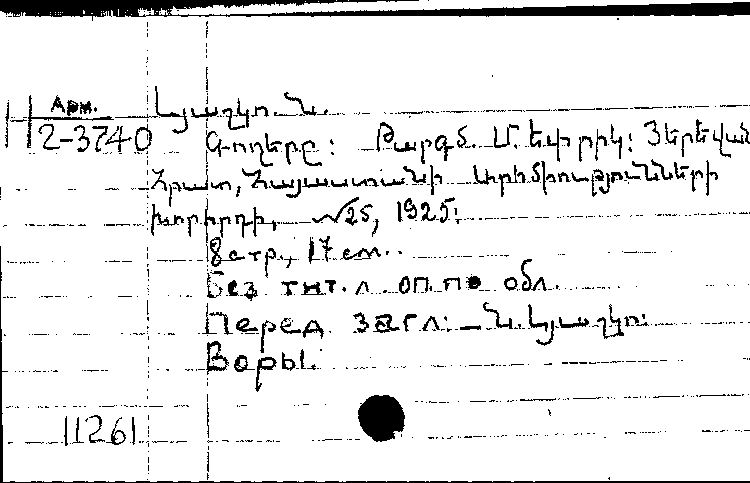 Арм.
2-3740
Լյաշկո. Ն.
Գողերը: Թարգմ. Մ. Եփրիկ: Յերեվան
Հրատ, Հայաստանի
խորհրդի, №25, 1925:
8 стр., 17 см..
Без тит. л. оп. по обл.
Перед загл: – Ն. Լյաշկո:
Воры.
11261